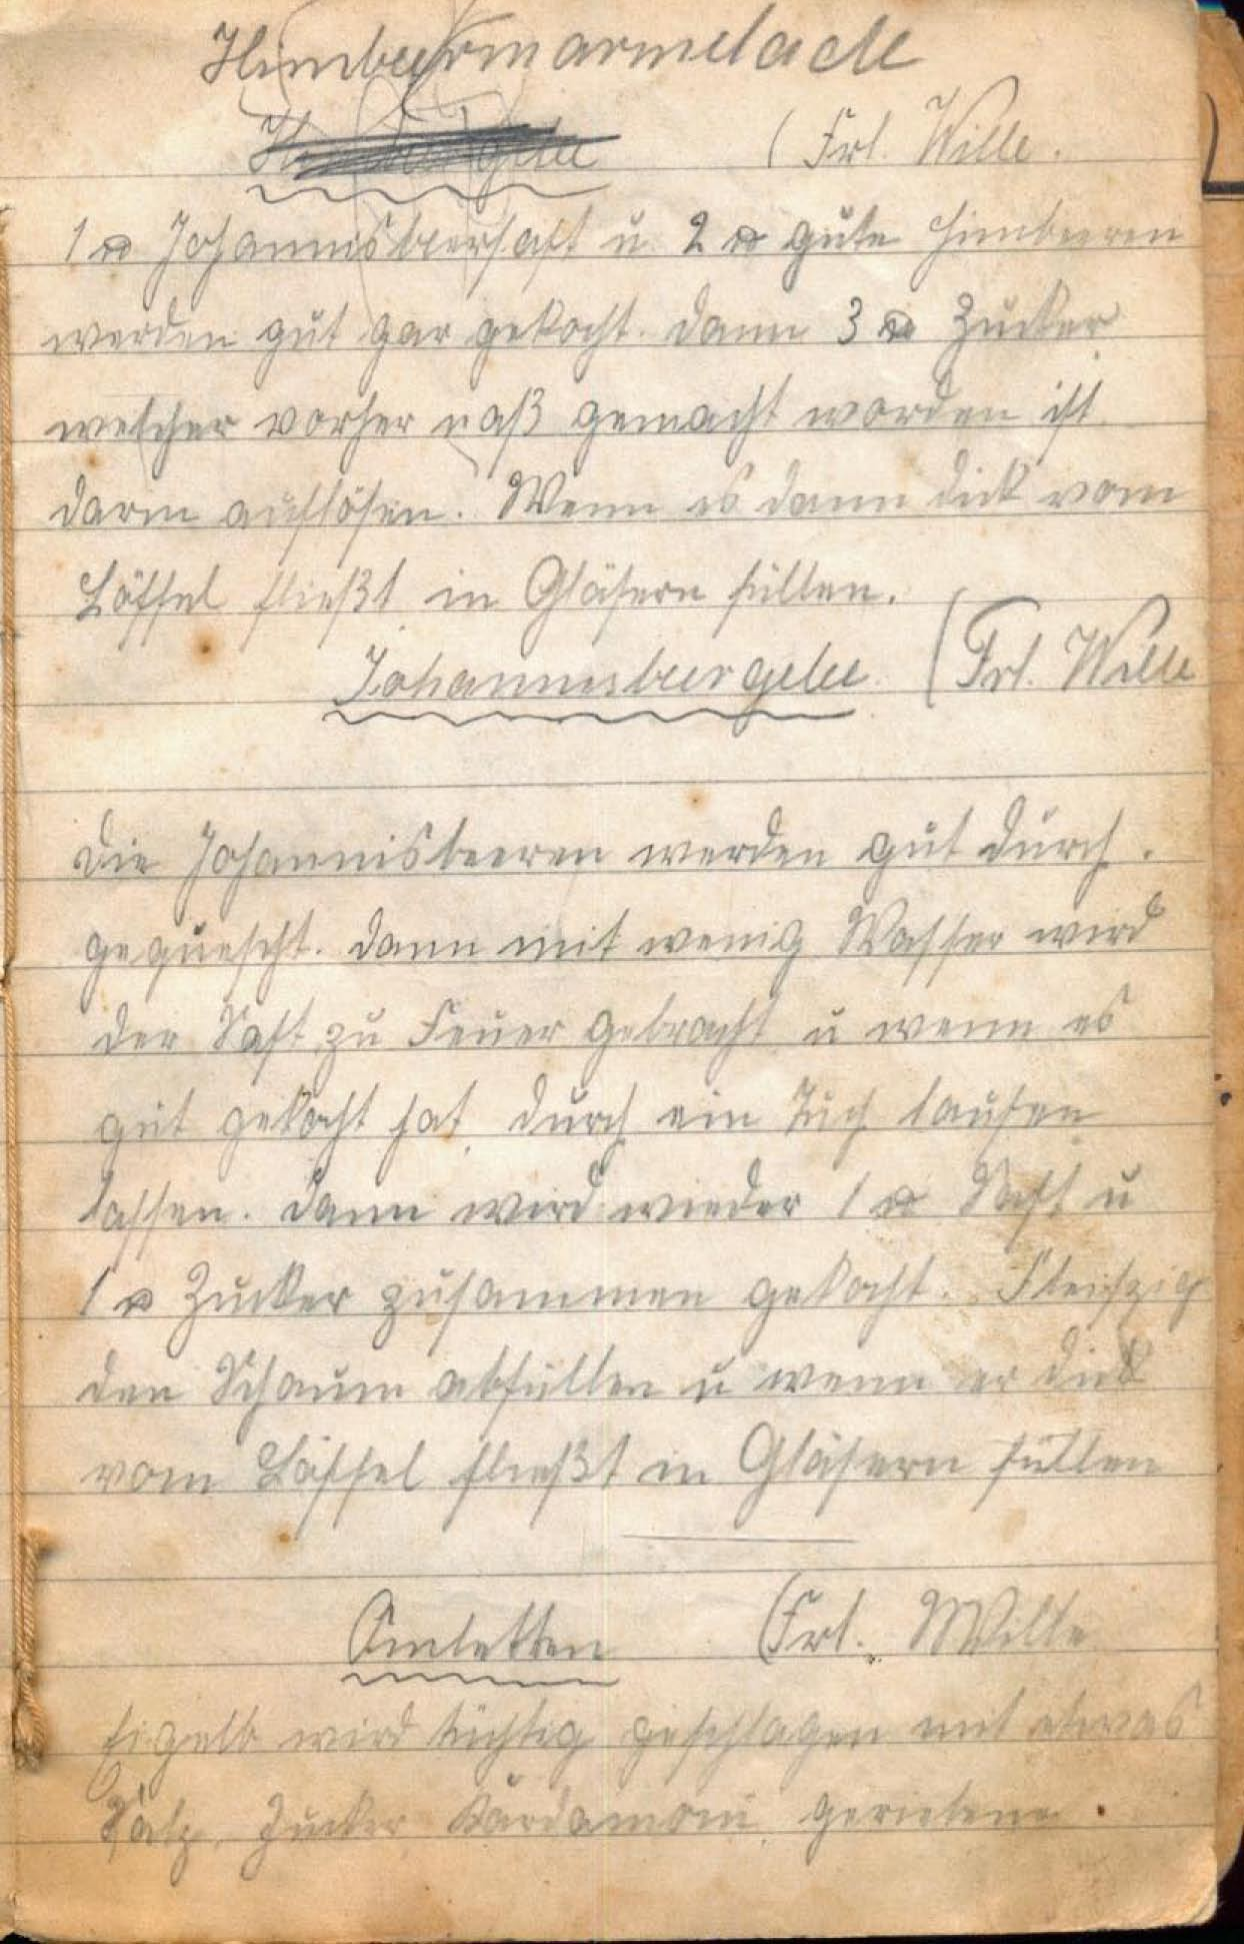 Himbeermarmelade
(Frl. Wille.
1 ℔ Johannisbeersaft u 2 ℔ gute Himbeeren
werden gut gar gekocht. Dann 3 ℔ Zucker
welcher vorher naß gemacht worden ist
darin auflösen. Wenn es dann dick vom
Löffel fließt in Gläsern füllen.
Johannesbeergelee (Frl. Wille
Die Johannisbeeren werden gut durch.
gequescht. Dann mit wenig Wasser wird
der Saft zu Feuer gebracht u wenn es
gut gekocht hat, durch ein Tuch laufen
lassen. Dann wird wieder 1 ℔ Saft u
1 ℔ Zucker zusammen gekocht. Fleiszig
den Schaum abfüllen u wenn er dick
vom Löffel fließt in Gläsern füllen
Omletten (Frl. Wille
Eigelb wird tüchtig geschlagen mit etwas
Salz, Zucker Kardamom, geriebene